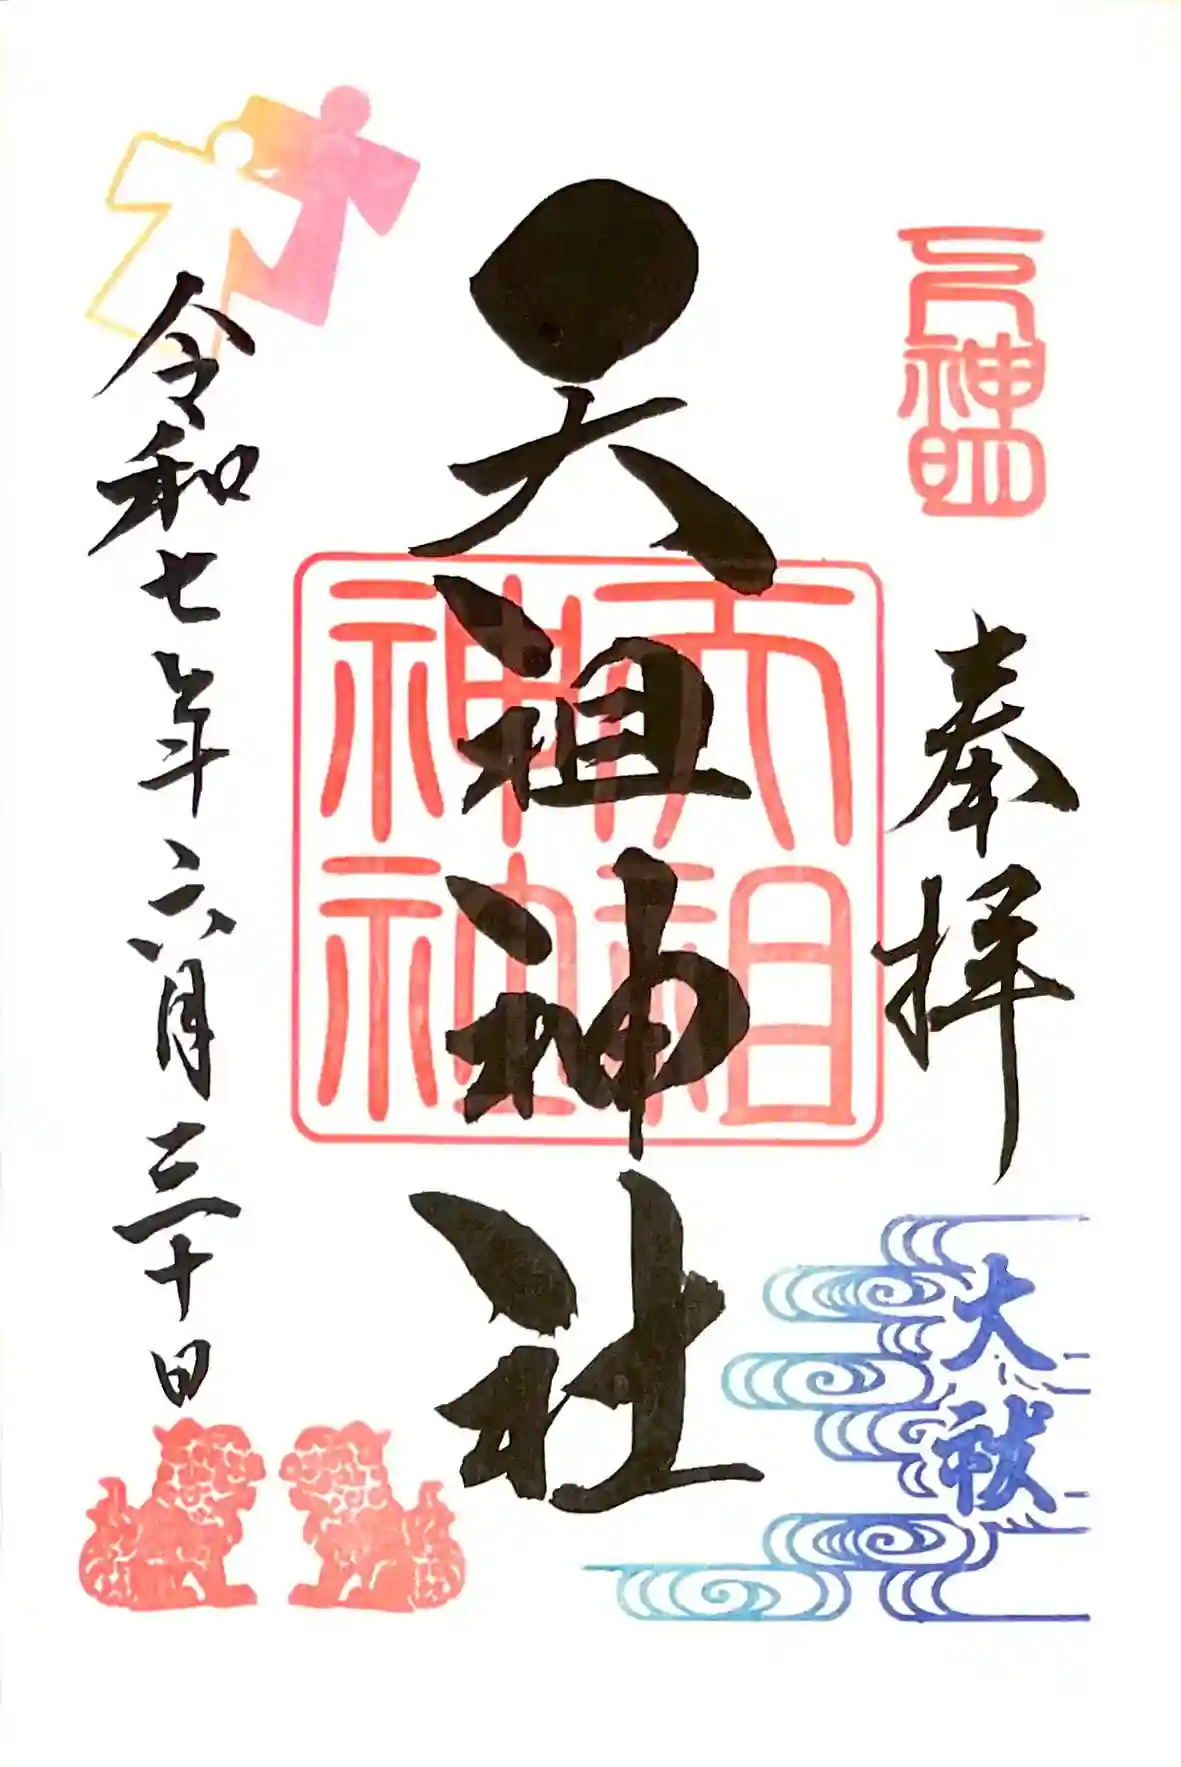 奉拝
大祓
天祖神社
天祖
神社
令和七年六月三十日